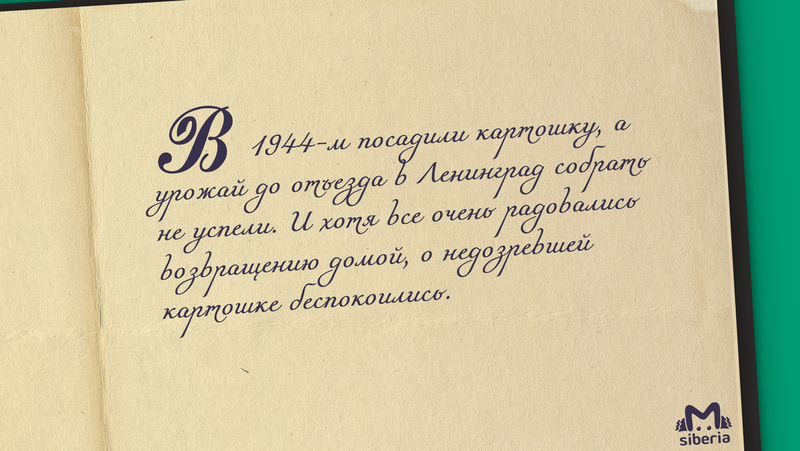 В 1944-м посадили картошку, а
урожай до отъезда в Ленинград собрать
не успели. И хотя все очень радовались
возвращению домой, о недозревшей
картошке беспокоились.
M
siberia